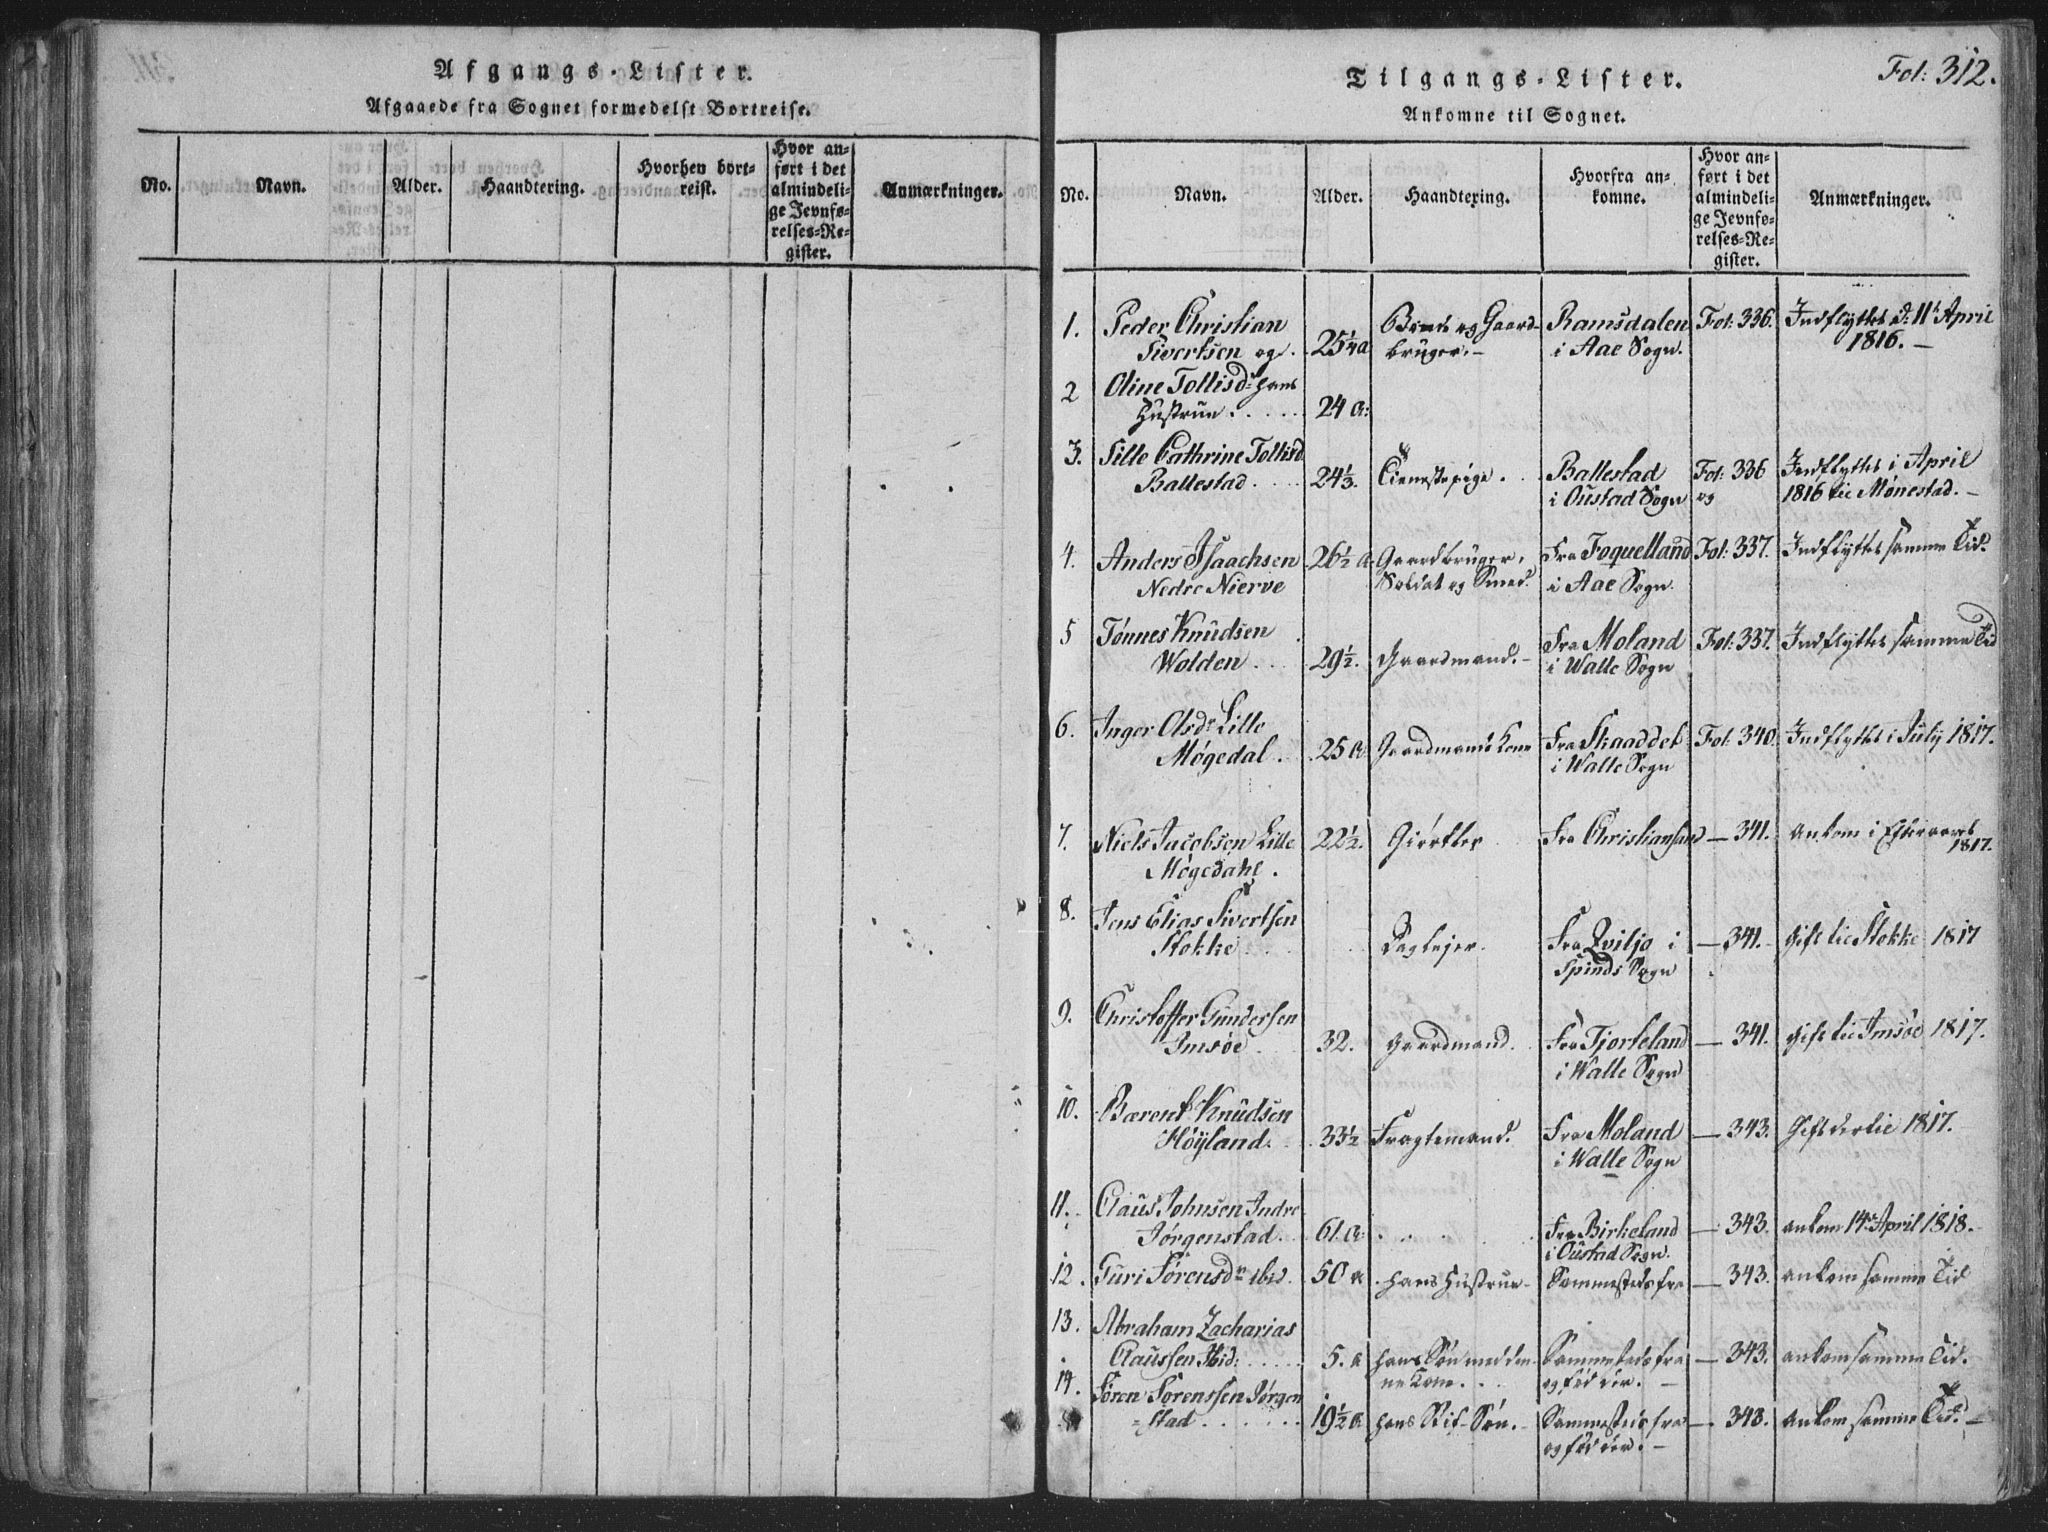 Afgangs-Lister.
Afgaaede fra Sognet formedelst Bortreise.
No.
Navn.
Alder.
Haandtering.
Hvorhen bort-
reist.
Hvor an-
ført i det
almindeli-
ge Jevnfø-
relses-Re-
gister.
Anmærkninger.
Fol: 312.
Tilgangs-Lister.
Ankomne til Sognet.
No.
Navn.
Alder.
Haandtering.
Hvorfra an-
komne.
Hvor an-
ført i det
almindeli-
ge Jevnfø-
relses-Re-
gister.
Anmærkninger.
1. Peder Christian
Sivertsen og 25 1/4 a
og Gaard-
bruger.-
Ramsdalen
i Aae Sogn.
Fol: 336.
Indflyttet d: 11t April
1816. -
2 Oline Tollisdr hans
Hustrue . . . . . 24 a:
3. Sille Cathrine Tollisd
Ballestad . . . . 24 1/3.
Tienestepige.
Ballestad
i Oustad Sogn
Fol: 336
og
Indflyttet i April
1816 til Mønestad. -
4. Anders Isaachsen
Nedre Nierve
26 1/2 a
Gaardbruger,
Soldat og Smed.
Fra Foquelland
i Aae Sogn.
Fol: 337.
Indflyttet samme Tid.
5 Tønnes Knudsen
Wolden . . . 29 1/2.
Gaardmand. -
Fra Moland
i Walle Sogn
Fol: 337.
Indflyttet samme Tid
6. Inger Olsdr Lille
Møgedal . . 25 a
Gaardmands Kone
Fra Skaaddet
i Walle Sogn
Fol: 340.
Indflyttet i July 1817.
7. Niels Jacobsen Lille
Møgedahl .
22 1/2.
Giørtler
Fra Christiansand
- 341.
Ankom i Efteraaret
1817.
8. Jens Elias Sivertsen
Stokke
Dagleier
Fra Qviljo i
Spinds Sogn
- 341. -
Gift til Stokke 1817
9. Christoffer Gundersen
Imsøe 32.
Gaardmand.
Fra Tjorteland
i Walle Sogn
- 341.
Gift til Imsøe 1817.
10. Bærent Knudsen
Høyland. 33 1/2
Fragtemand.
Fra Moland
i Walle Sogn
- 343.
Gift dertil 1817.
11. Claus Johnsen Indre
Jørgenstad. 61 a
Fra Birkeland
i Oustad Sogn.
- 343.
ankom 14de April 1818.
12. Guri Sørensdr ibid. 50 a
hans Hustrue -
Sammesteds fra
- 343.
ankom samme Tid
13. Abraham Zacharias
Claussen Ibid: . . . . . 5. a
hans Søn med den-
ne Kone. . .
Sammesteds fra
og fød der. -
- 343.
ankom samme Tid.
14. Søren Sørenssen Jørgen
=stad . . . . . . 19 1/2 a
hans Stif-Søn.
Sammesteds fra
og fød der. -
- 343.
ankom samme Tid. -